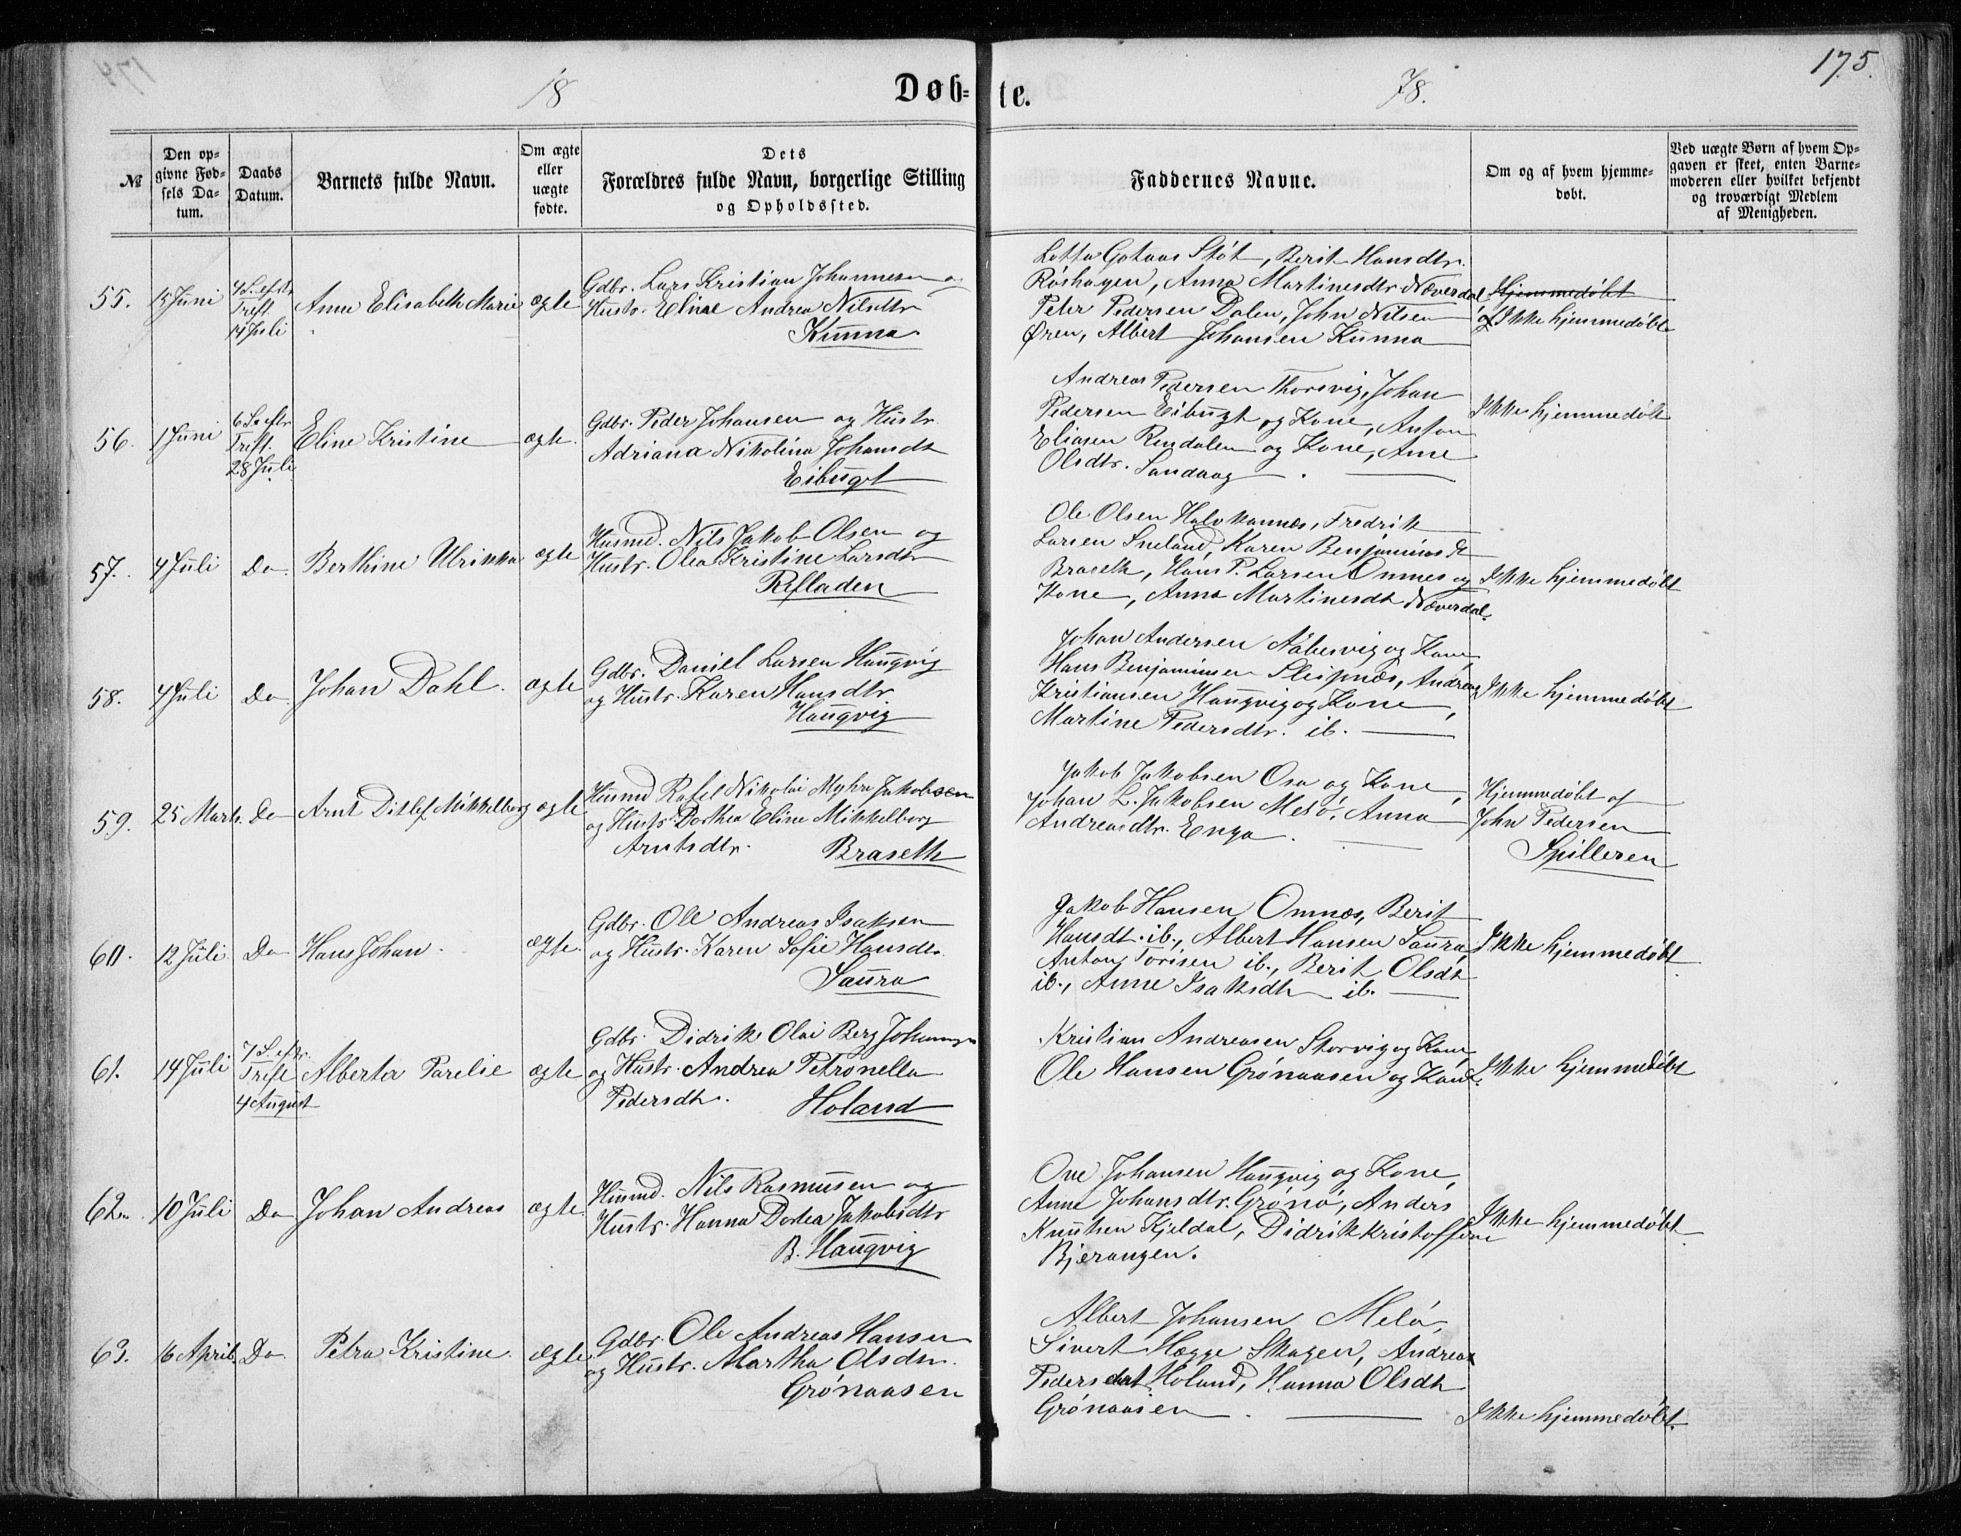 175.
18 Døb= te. 78.
№
Den op=
givne Fød=
sels Da=
tum.
Daabs
Datum.
Barnets fulde Navn.
Om ægte
eller
uægte
fødte.
Dets
Forældres fulde Navn, borgerlige Stilling
og Opholdssted.
Faddernes Navne.
Om og af hvem hjemme-
døbt.
Ved uægte Børn af hvem Op-
gaven er skeet, enten Barne-
moderen eller hvilket bekjendt
og troværdigt Medlem
af Menigheden.
55. 15 Juni
4 S. eftr.
Treft
14 Juli
Anne Elisabeth Marie
ægte
Gdbr. Lars Kristian Johannesen og
Hustr. Eline Andrea Nilsdtr
Kunna
Lotta Gotaas Støt, Berit Hansdtr.
Røshagen, Anna Martinesdtr Næverdal
Peter Pedersen Dalen, John Nilsen
Øren, Albert Johansen Kunna
Hjemmedøbt
Ikke hjemmedøbt
56. 1 Juni
6 S. eftr
Treft.
28 Juli
Eline Kristine
ægte.
Gdbr. Peder Johansen og Hustr.
Adriana Nikolina Johansdt
Eibugt
Andreas Pedersen Thorsvig, Johan
Pedersen Eibugt og Kone, Anton
Eliasen Rendalen og Kone, Ane
Olsdtr. Sandaag
Ikke hjemmedøbt
57. 4 Juli Do. Berthine Ulrikka ægte
Husmd. Nils Jakob Olsen og
Hustr. Olea Kristine Larsdtr
Refladen
Ole Olsen Halvkannæs, Fredrik
Larsen Sneland, Karen Benjaminsdt
Braseth, Hans P. Larsen Omnes og
Kone, Anna Martinesdt Næverdal.
Ikke hjemmedøbt
58. 4 Juli Do Johan Dahl. ægte
Gdbr. Daniel Larsen Haugvig
og Hustr. Karen Hansdtr
Haugvig
Johan Andersen Aabesvig og Kone
Hans Benjaminsen Sleipnæs, Andreas
Kristiansen Haugvig og Kone,
Martine Pedersdtr. ib.
Ikke hjemmedøbt
59. 25 Marts. Do Arnt Ditlef Mikkelborg ægte
Husmd Rafel Nikolai Myhre Jakobsen
og Hustr. Dorthea Eline Mikkelborg
Arntsdtr. Braseth
Jakob Jakobsen Osa og Kone,
Johan L. Jakobsen Melø, Anna
Andreasdtr. Enga.
Hjemmedøbt af
John Pedersen
Spilleren
60. 12 Juli Do Hans Johan. ægte.
Gdbr. Ole Andreas Isaksen
og Hustr. Karen Sofie Hansdtr.
Saura
Jakob Hansen Omnæs, Berit
Hansdt. ib., Albert Hansen Saura,
Anton Torisen ib., Berit Olsdt
ib., Anne Isaksdt ib.
Ikke hjemmedøbt
61. 14 Juli
7 S. eftr.
Treft
4 August
Alberta Parelie
ægte
Gdbr. Didrik Olai Berg Johansen
og Hustr. Andrea Petronella
Pedersdt. Holand
Kristian Andreasen Storvig og Kone,
Ole Hansen Grønaasen og Kone.
Ikke hjemmedøbt
62. 10 Juli Do Johan Andreas ægte
Husmd. Nils Rasmusen og
Hustr. Hanna Dortea Jakobsdtr
B. Haugvig
Ove Johansen Haugvig og Kone,
Anne Johansdtr. Grønø, Anders
Knutsen Kjeldal, Didrik Kristoffersen
Bjerangen.
Ikke hjemmedøbt
63. 16 April Do. Petra Kristine ægte
Gdbr. Ole Andreas Hansen
og Hustr. Martha Olsdtr.
Grønaasen
Albert Johansen Melø,
Sivert Hegge Skagen, Andrea
Pedersdat Holand, Hanna Olsdt
Grønaasen.
Ikke hjemmedøbt.